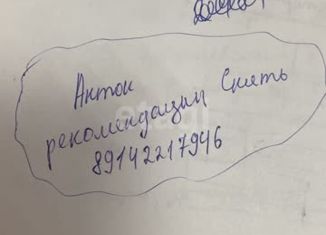 Антон
рекомендации Снять
89142217946